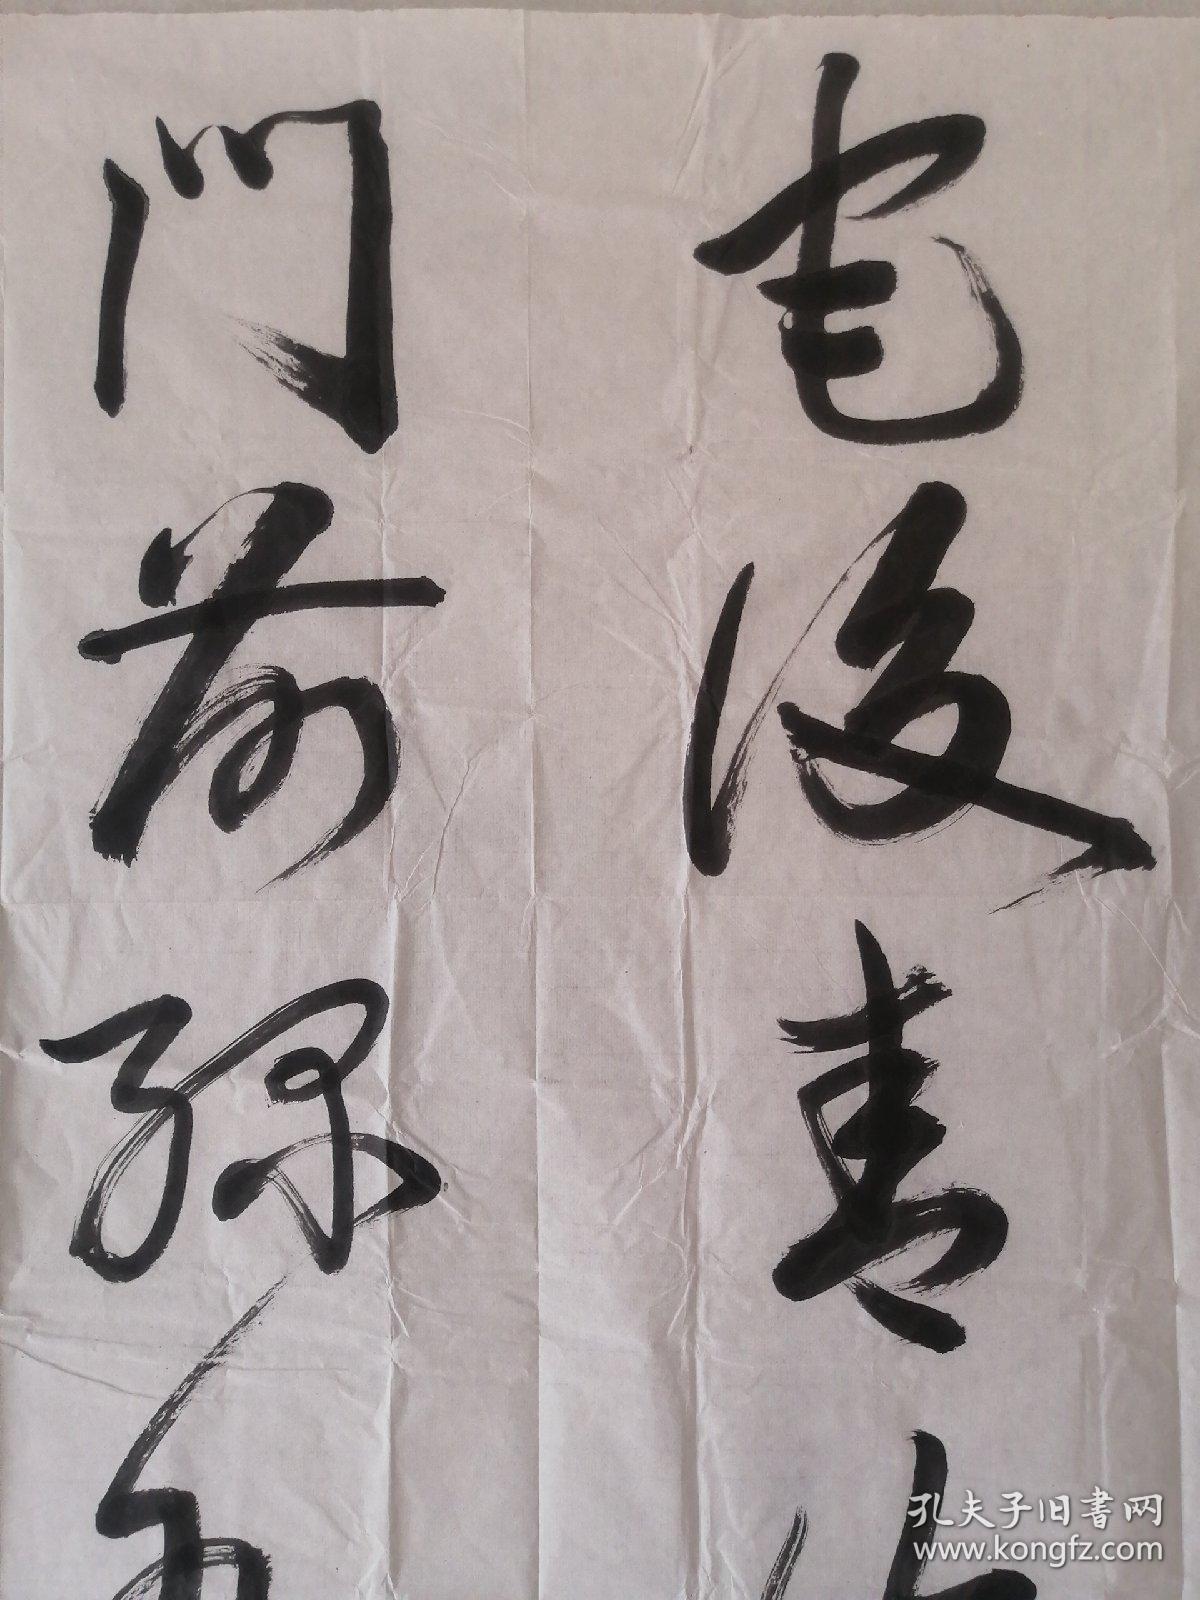 宅後青
門前綠
孔夫子旧書网
www.kongfz.com